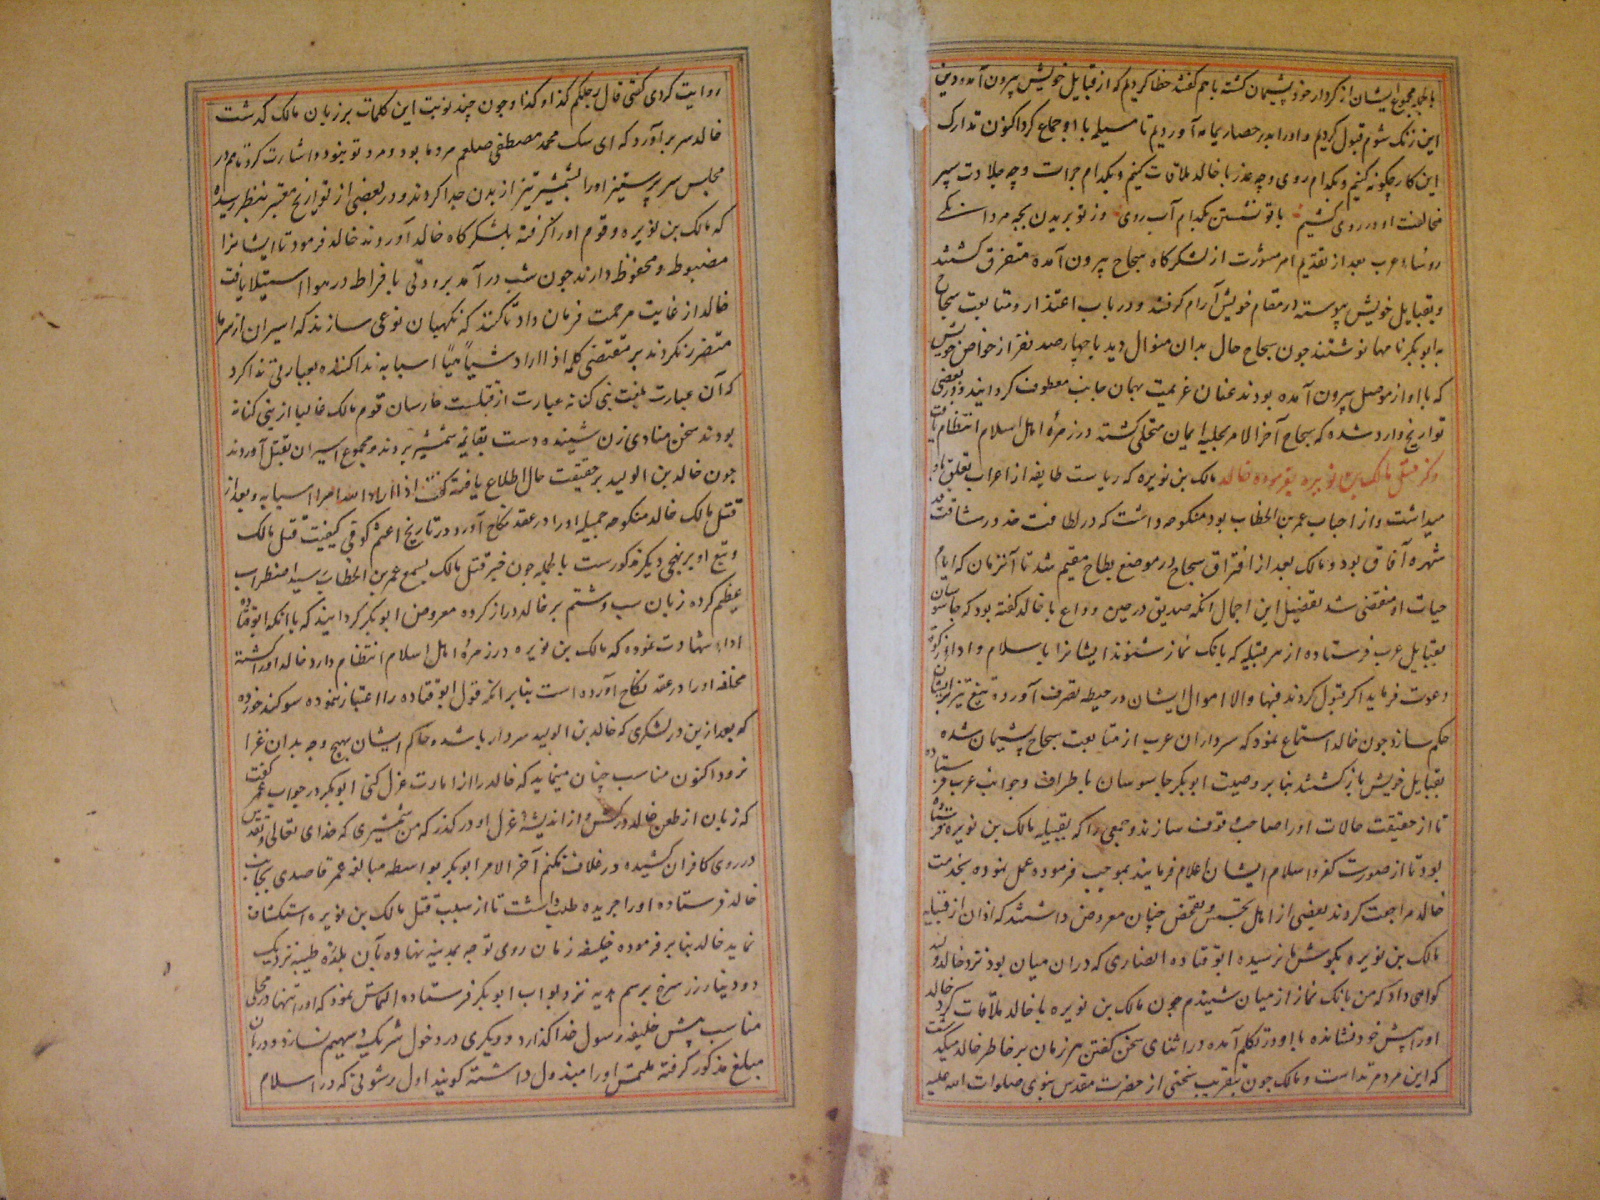 بالجمله مجموع ایشان از کردار خود پشیمان کشته با هم کفتند خطا کردیم که از قبایل خویش بیرون آمده دین
این زنک شوم قبول کردیم و او را بدر حصار یمامه آوردیم تا مسیلمه با او جماع کرد اکنون تدارک
این کار چکونه کنیم و بکدام روی و چه عذر با خالد ملاقات کنیم و بکدام جرات و چه جلادت سپر
مخالفت او در روی کشیم با تو نشستن بکدام آب روی وز تو بریدن بچه مردانکی
رؤساء عرب بعد از تقدیم امر مشورت از لشکرکاه سجاح بیرون آمده متفرق کشتند
و بقبایل خویش پیوسته در مقام خویش آرام کرفتند و در باب اعتذار و متابعت سجاح
به ابوبکر نامها نوشتند جون سجاح حال بدان منوال دید با جهار صد نفر از خواص خویش
که با او از موصل بیرون آمده بودند عنان عزیمت بهمان جانب معطوف کردانید و در بعضی
تواریخ وارد شده که سجاح آخر الامر بحلیه ایمان متحلی کشته در زمرهٔ اهل اسلام انتظام یافت
ذکر قتل مالک بن نویره بفرموده خالد مالک بن نویره که ریاست طایفه از اعراب تعلق باو
میداشت و از احباب عمر بن الخطاب بود منکوحه داشت که در لطافت خد و رشاقت قد
شهره آفاق بود و مالک بعد از افتراق سجاح در موضع بطاح مقیم شد تا آنزمان که ایام
حیات او منقضی شد تفصیل این اجمال انکه صدیق در حین وداع با خالد کفته بود که جاسوسان
بقبایل عرب فرستاده از هر قبیله که بانک نماز شنوند ایشانرا باسلام و اداء زکوة
دعوت فرماید اکر قبول کردند فبها و الا اموال ایشان در حیطه تصرف آورده تیغ تیز بر ایشان
حکم سازد جون خالد استماع نمود که سرداران عرب از متابعت سجاح پشیمان شده
بقبایل خویش باز کشتند بنا بر وصیت ابوبکر جاسوسان باطراف و جوانب عرب فرستاده
تا از حقیقت حالات او را صاحب وقوف سازند و جمعی را که بقبیله مالک بن نویره فرستاده
بود تا از صورت کفر و اسلام ایشان اعلام فرمایند بموجب فرموده عمل نموده بخدمت
خالد مراجعت کردند بعضی از اهل تجسس و تفحص جنان معروض داشتند که اذان از قبیله
مالک بن نویره بکوش ما نرسیده ابو قتاده انصاری که در ان میان بود نزد خالد ولید
کواهی داد که من بانک نماز از میان شنیدم جون مالک بن نویره با خالد ملاقات کرد خالد
او را پیش خود نشانده با او در تکلم آمده در اثنای سخن کفتن هر زمان بر خاطر خالد میکذشت
که این مرد مرتد است و مالک جون بتقریب سخنی از حضرت مقدس نبوی صلوات الله علیه
روایت کردی کفتی قال رجلکم کذا و کذا و جون چند نوبت این کلمات بر زبان مالک کذشت
خالد سر برآورد که ای سک محمد مصطفی صلعم مرد ما بود و مرد تو نبود و اشارت کرد تا هم در
مجلس سر پر ستیز او را بشمشیر تیز از بدن جدا کردند و در بعضی از تواریخ معتبر بنظر رسیده
که مالک بن نویره و قوم او را کرفته بلشکرکاه خالد آوردند خالد فرمود تا ایشانرا
مضبوط و محفوظ دارند جون شب در آمد برودتی بافراط در هوا استیلا یافت
خالد از غایت مرحمت فرمان داد تا کفتند که نکهبان نوعی سازند که اسیران از سرما
متضرر نکردند بر مقتضی کلمه اذا اراد شیأ هیأ اسبابه ندا کننده بعبارتی ندا کرد
که آن عبارت بلغت بنی کنانه عبارت از قتلست حارسان قوم مالک غالبا از بنی کنانه
بودند سخن منادی زن شنیده دست بقایمه شمشیر بردند و مجموع اسیران بقتل آوردند
جون خالد بن الولید بر حقیقت حال اطلاع یافته کفت اذا اراد الله امرا اسبابه و بعد از
قتل مالک خالد منکوحه جمیله او را در عقد نکاح آورد و در تاریخ اعثم کوفی کیفیت قتل مالک
و تبع او بر نهجی دیکر مذکورست بالجمله جون خبر قتل مالک بسمع عمر بن الخطاب رسید اضطراب
عظیم کرده زبان سب و شتم بر خالد دراز کرده معروض ابوبکر کردانید که با انکه ابو قتاده
اداء شهادت نموده که مالک بن نویره در زمرهٔ اهل اسلام انتظام دارد خالد او را کشته
مخلفه او را در عقد نکاح آورده است بنا بر انکه قول ابو قتاده را اعتبار ننموده سوکند خورده
که بعد ازین در لشکری که خالد بن الولید سردار باشد و حاکم ایشان بهیج وجه بدان غزا
نرود اکنون مناسب چنان مینماید که خالد را از امارت عزل کنی ابوبکر در جواب عمر کفت
که زبان از طعن خالد درکش و از اندیشهٔ عزل او در کذر که من شمشیری که خدای تعالی و تقدس
در روی کافران کشیده در غلاف نکنم آخر الامر ابوبکر بواسطه مبالغه عمر قاصدی بجانب
خالد فرستاده او را جریده طلب داشت تا از سبب قتل مالک بن نویره استکشاف
نماید خالد بنا بر فرموده خلیفه زمان روی توجه بمدینه نهاده بآن بلده طیبه نزدیک
دو دینار زر سرخ برسم هدیه نزد بواب ابوبکر فرستاده التماس نمود که او را تنها در محلی
مناسب پیش خلیفه رسول خدا کذارد و دیکری در دخول شریک و سهیم نسازد و دربان
مبلغ مذکور کرفته ملتمس او را مبذول داشته کویند اول رشوتی که در اسلام